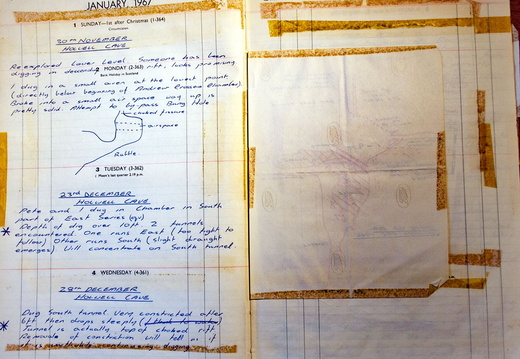 JANUARY, 1967
1 SUNDAY—1st after Christmas (1-364)
Circumcision
30TH NOVEMBER
HOLWELL CAVE
Re explored Lower Level. Someone has been
digging in descending rift, looks promising
2 MONDAY (2-363)
Bank Holiday in Scotland
I dug in a small aven at the lowest point
(directly below beginning of Andrew Crosse Chamber)
Broke into a small air space way up is
pretty solid. Attempt to by-pass Bung Hole
choked fissure
airspace
Rubble
3 TUESDAY (3-362)
23RD DECEMBER
HOLWELL CAVE
Pete and I dug in Chamber in South
part of East Series (qv)
Depth of dig over 10ft. 2 tunnels
encountered. One runs East (too tight to
follow) Other runs South (slight draught
emerges) Will concentrate on South tunnel.
4 WEDNESDAY (4-361)
28TH DECEMBER
HOLWELL CAVE
Dug South tunnel Very constricted after
6ft then drops steeply
Tunnel is actually top of choked rift
Removal of constriction will tell as it